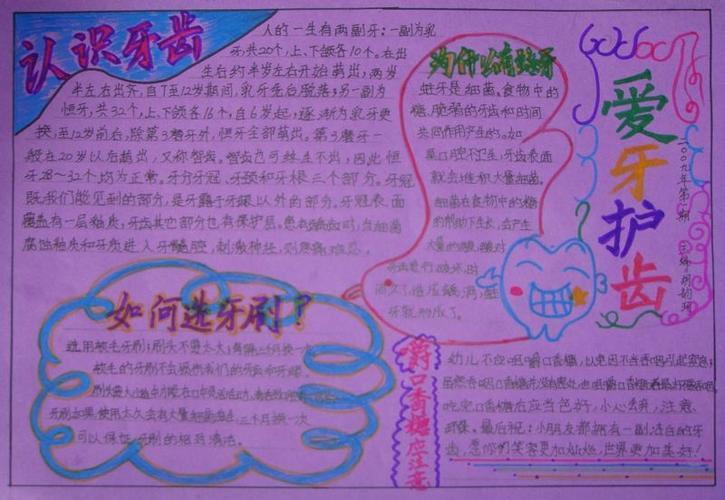 认识牙齿
人的一生有两副牙:一副为乳
牙,共20个,上、下颌各10个。在出
生后约半岁左右开始萌出,两岁
半左右出齐,自7至12岁期间,乳牙先后脱落;另一副为
恒牙,共32个,上、下颌各16个,自6岁起,逐渐为乳牙更
换,至12岁前后,除第3磨牙外,恒牙全部萌出。第3磨牙一
般在20岁以后萌出,又称智齿。智齿也可终生不出,因此恒
牙28~32个均为正常。牙分牙冠、牙颈和牙根三个部分。牙冠
既我们能见到的部分,是牙露于牙龈以外的部分。牙冠表面
覆盖有一层釉质,牙齿其它部分也有保护层。患有龋齿时,当细菌
腐蚀釉质和牙质进入牙髓腔,刺激神经,则疼痛难忍。
为什么有蛀牙
蛀牙是细菌、食物中的
糖、脆弱的牙齿和时间
共同作用产生的。如
果口腔不卫生,牙齿表面
就会堆积大量细菌。
细菌在食物中的糖
的帮助下生长,会产生
大量的酸,酸对
牙齿进行破坏,时
间久了,造成龋洞,蛀
牙就形成了。
爱牙护齿
二00九年第一期
如何选牙刷?
选用软毛牙刷;刷头不要太大;每隔三个月换一次
软毛的牙刷不会损伤我们的牙齿和牙龈。
牙刷如果使用太久会有大量细菌滋生,三个月换一次
可以保证牙刷的相对清洁。
嚼口香糖应注意
幼儿不应咀嚼口香糖,以免因不注意吞咽引起窒息;
吃完口香糖后应当包好,小心丢弃,注意
环保。最后祝:小朋友都拥有一副洁白的牙
齿,愿你们笑容更加灿烂,世界更加美好!